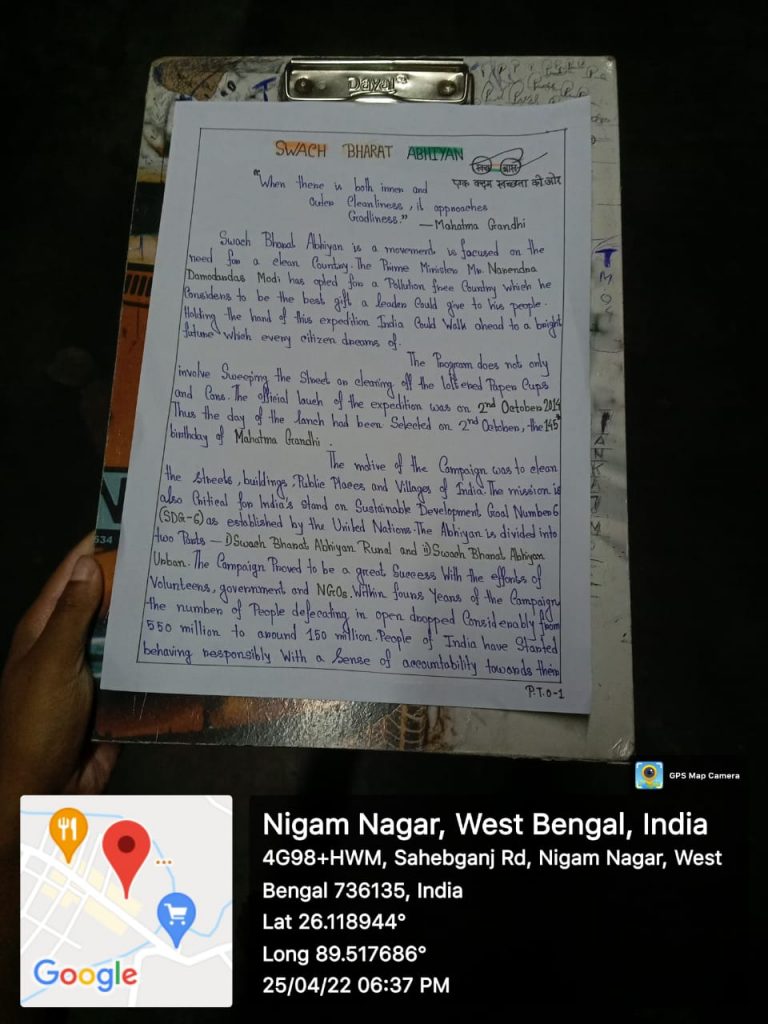 Dayal
SWACH BHARAT ABHIYAN
स्वच्छ भारत
एक कदम स्वच्छता की ओर
"When there is both inner and
outer Cleanliness, it approaches
Godliness."
— Mahatma Gandhi
Swach Bharat Abhiyan is a movement is focused on the
need for a clean Country. The Prime Minister Mr. Narendra
Damodardas Modi has opted for a Pollution free Country which he
Considers to be the best gift a leader Could give to his people.
Holding the hand of this expedition India Could Walk ahead to a bright
future which every citizen dreams of.
The Program does not only
involve Sweeping the Street or clearing off the Paper Cups
and Cans. The official lauch of the expedition was on 2nd October 2014
Thus the day of the lanch had been Selected on 2nd October, the 145th
birthday of Mahatma Gandhi.
The motive of the Campaign was to clean
the streets, buildings, Public Places and Villages of India. The mission is
also Critical for India's stand on Sustainable Development Goal Number 6
(SDG-6) as established by the United Nations. The Abhiyan is divided into
two Parts — i) Swach Bharat Abhiyan Rural and ii) Swach Bharat Abhiyan
Urban. The Campaign Proved to be a great Success With the efforts of
Volunteers, government and NGOs. Within fours Years of the Campaign
the number of People defecating in open dropped Considerably from
550 million to around 150 million. People of India have Started
behaving responsibly With a Sense of accountability towards their
P.T.O-1
534
GPS Map Camera
Nigam Nagar, West Bengal, India
4G98+HWM, Sahebganj Rd, Nigam Nagar, West
Bengal 736135, India
Lat 26.118944°
Long 89.517686°
25/04/22 06:37 PM
Google